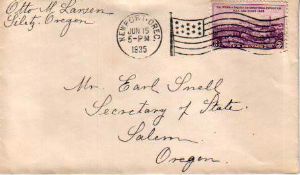 Otto M. Larsen
Siletz, Oregon
NEWPORT, OREG.
JUN 15
6-PM
1935
3
Mr. Earl Snell
Secretary of State.
Salem
Oregon.